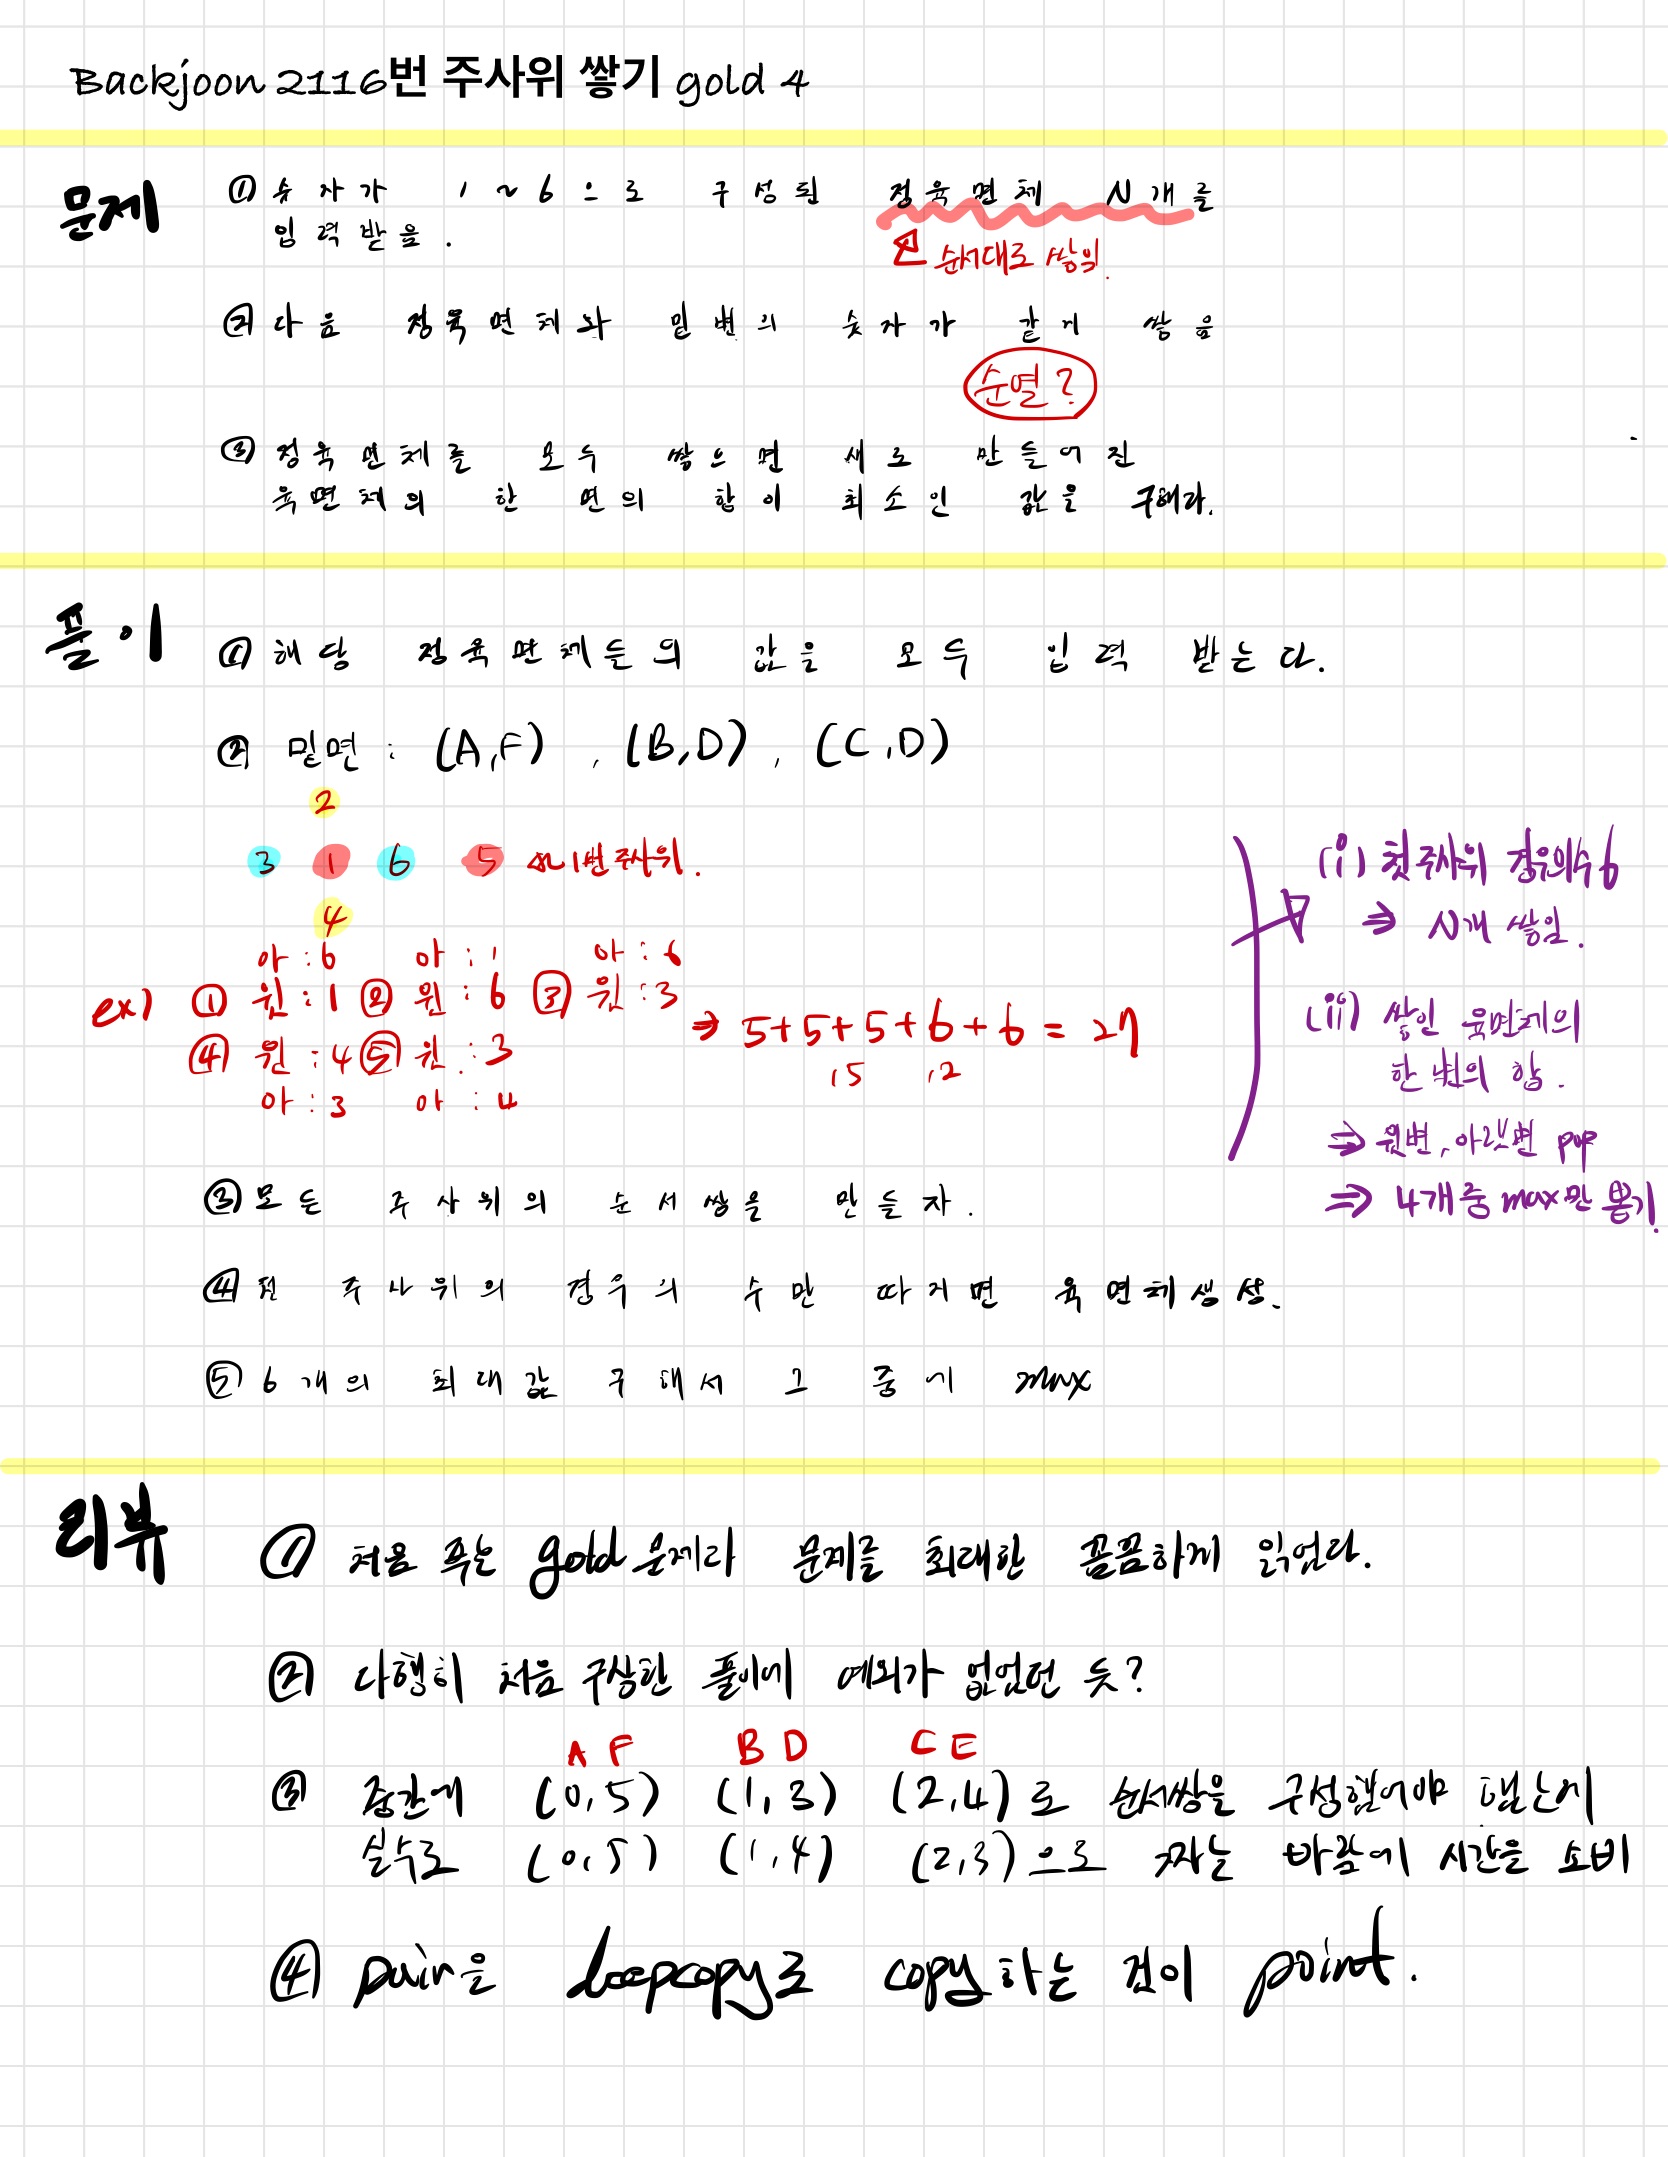 Backjoon 2116번 주사위 쌓기 gold 4
문제
① 숫자가 1~6으로 구성된 정육면체 N개를
입력받음.
순서대로 쌓임.
② 다음 정육면체와 밑변의 숫자가 같게 쌓음
순열?
③ 정육면체를 모두 쌓으면 새로 만들어진
육면체의 한 면의 합이 최소인 값을 구해라.
풀이
① 해당 정육면체들의 값을 모두 입력 받는다.
② 밑면 : (A,F) , (B,D) , (C,D)
2
3 1 6 5 1번 주사위.
4
아:6 아:1 아:6
ex) ① 윈:1 ② 윈:6 ③ 윈:3
④ 윈:4 ⑤ 윈:3
아:3 아:4
⇒ 5+5+5+6+6 = 27
15 12
(i) 첫 주사위 경우의수 6
⇒ N개 쌓임.
(ii) 쌓인 육면체의
한 변의 합.
⇒ 윈변, 아랫변 pop
⇒ 4개 중 max만 뽑기.
③ 모든 주사위의 순서쌍을 만들자.
④ 첫 주사위의 경우의 수만 따지면 육면체 생성.
⑤ 6개의 최대값 구해서 그 중에 max
리뷰
① 처음 푸는 gold 문제라 문제를 최대한 꼼꼼하게 읽었다.
② 다행히 처음 구상한 풀이에 예외가 없었던 듯?
A F B D C E
③ 중간에 (0,5) (1,3) (2,4)로 순서쌍을 구성했어야 했는데
실수로 (0,5) (1,4) (2,3)으로 짜는 바람에 시간을 소비
④ pair을 deepcopy로 copy하는 것이 point.